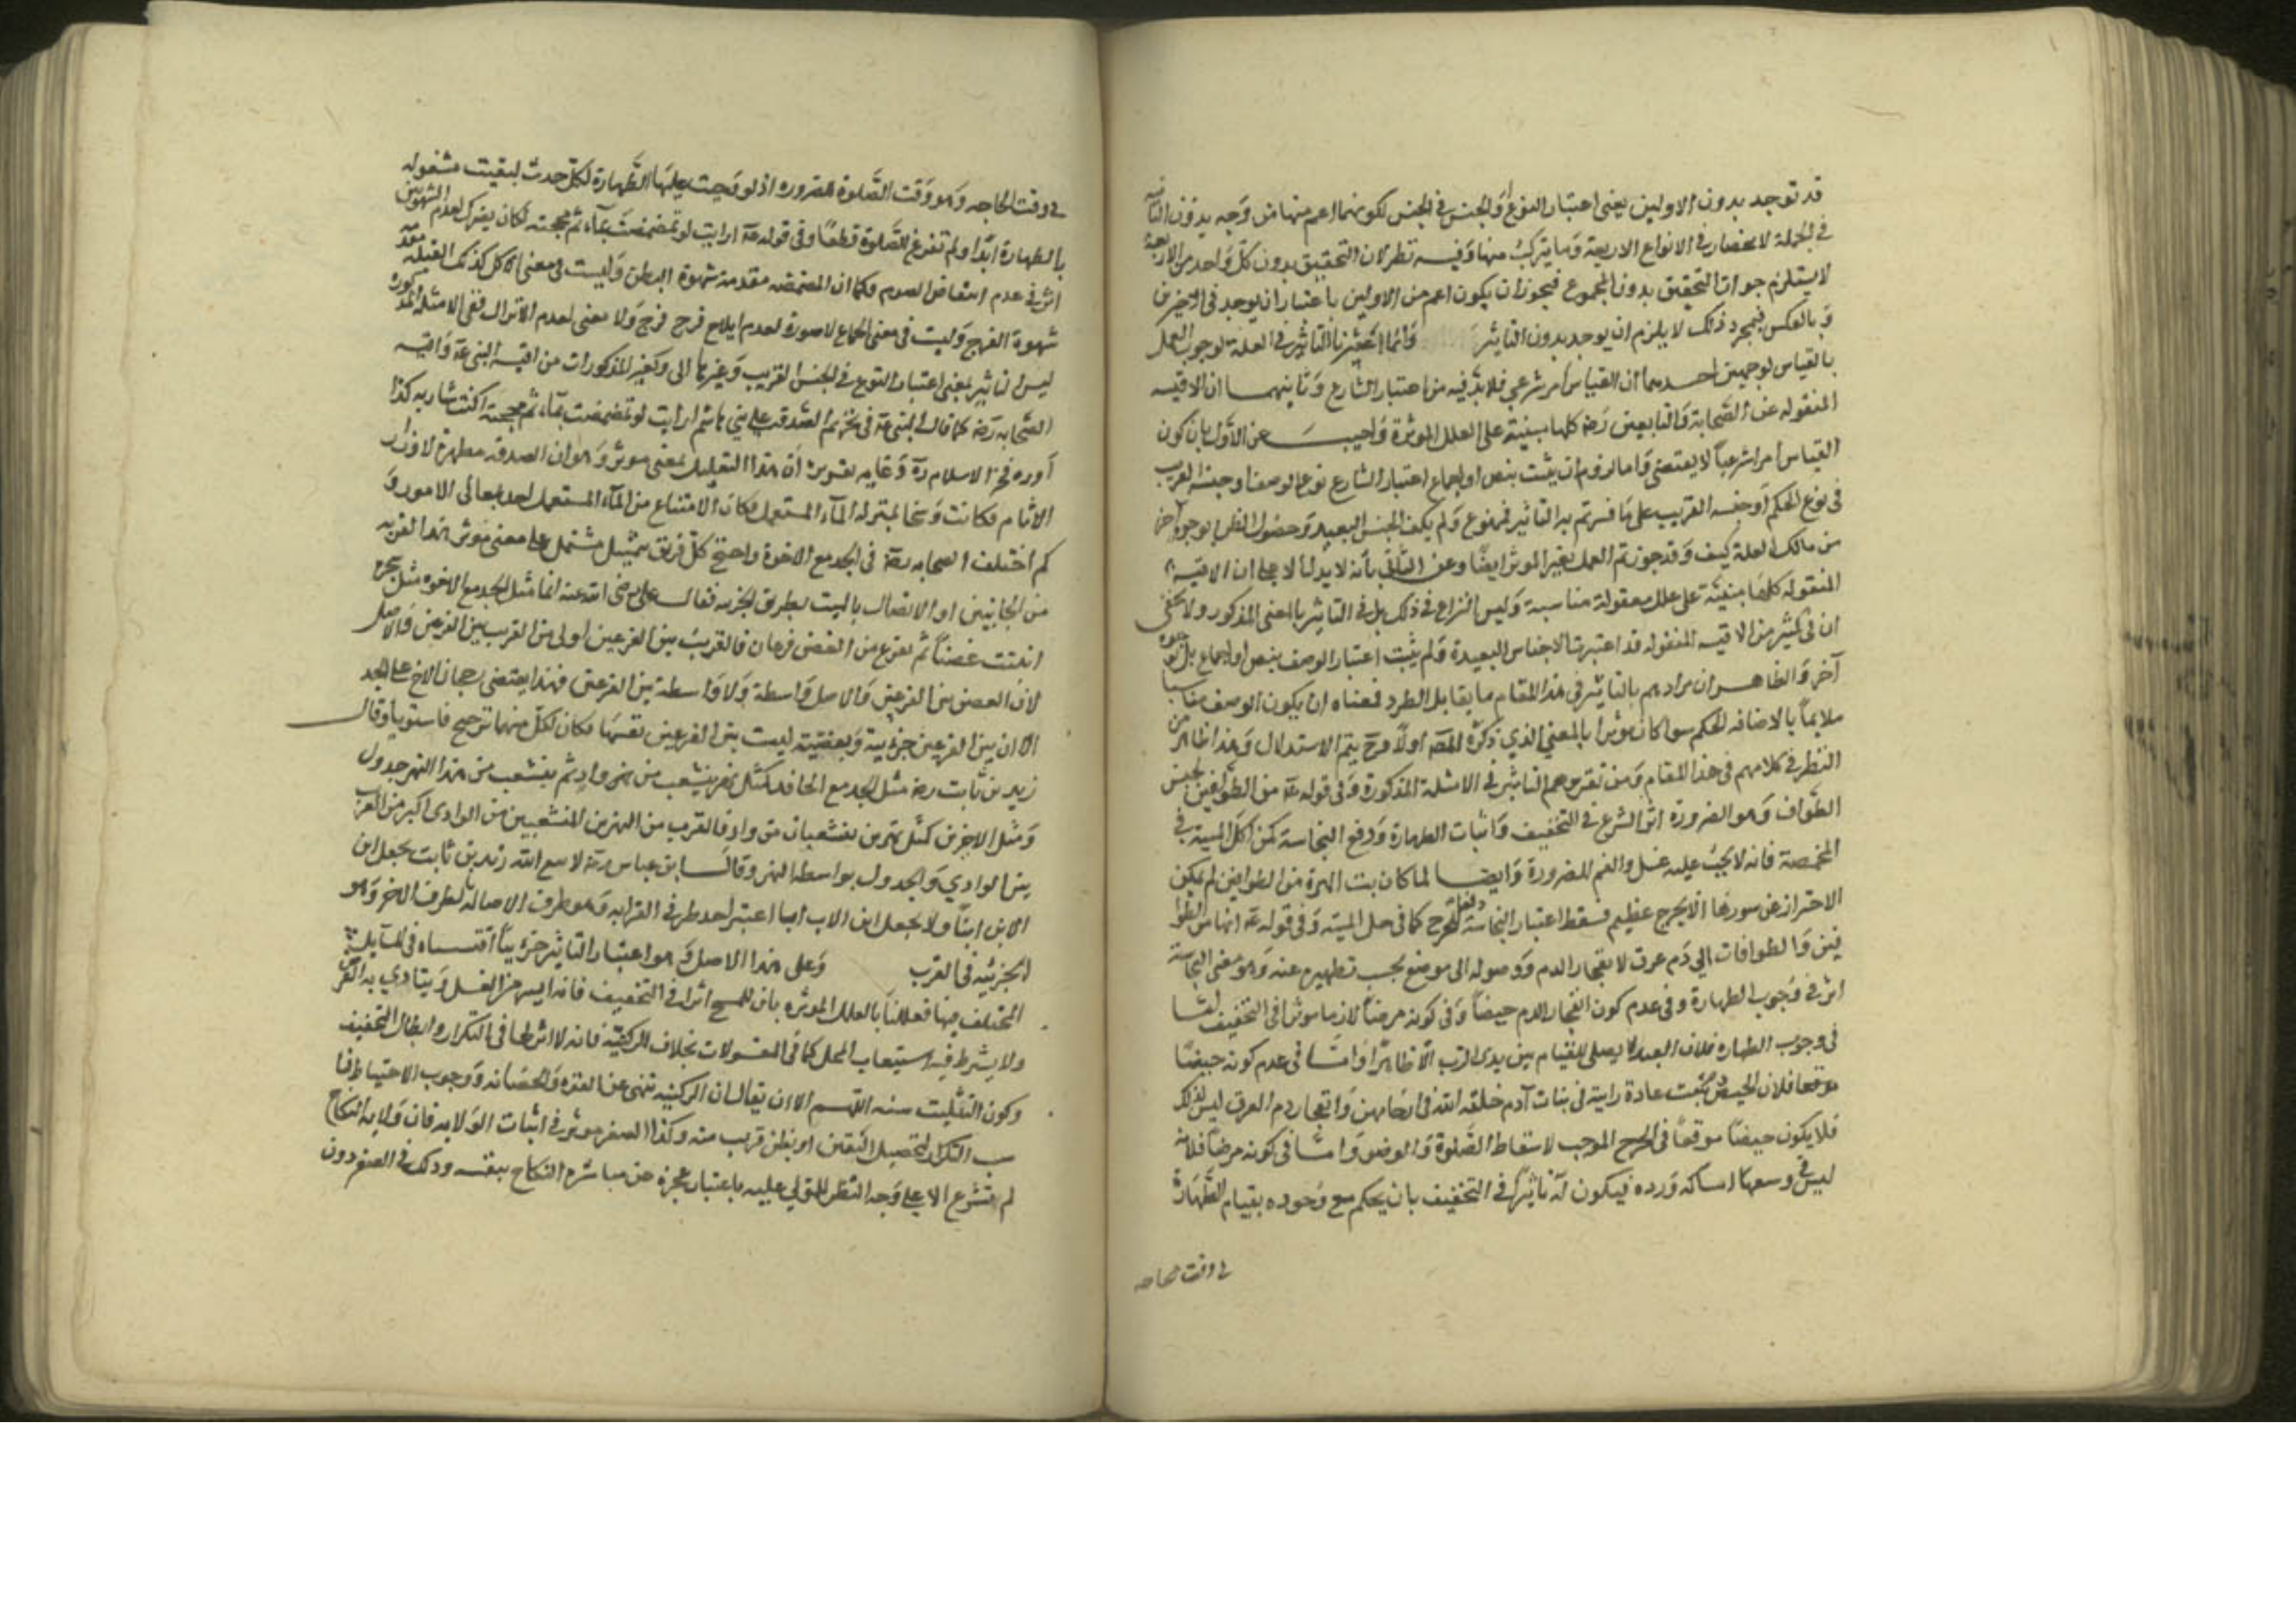 قد توجد بدون الاولين يعنى اعتبار النوع او الجنس فى الجنس لكونهما اعم منها من وجه بدون التاثير
فى الجملة لانحصار فى الانواع الاربعة وما يتركب منها وفيه نظر لان التحقيق بدون كل واحد من الاربعة
لا يستلزم جواز التحقيق بدون المجموع فيجوز ان يكون اعم من الاولين باعتبار ان يوجد فى الاخرين
وبالعكس فبمجرد ذلك لا يلزم ان يوجد بدون التاثير وانما اعتبرنا التاثير فى العلة لوجوب العمل
بالقياس لوجهين احدهما ان القياس امر شرعى فلابد فيه من اعتبار الشارع وثانيهما ان الاقيسه
المنقوله عن الصحابة والتابعين رضه كلها مبنية على العلل الموثرة واجيب عن الاول بان كون
القياس امرا شرعيا لا يقتضى ان يثبت بنص او اجماع اعتبار الشارع نوع الوصف او جنسه القريب
فى نوع الحكم او جنسه القريب على ما فسرتم به التاثير فممنوع ولم يكف الجنس البعيد وحصول الظن بوجوه اخر
من مالك العلة كيف وقد جوزتم العمل بغير الموثر ايضا وعن الثانى بانه لا يدل الا على ان الاقيسة
المنقولة كلها مبنية على علل معقولة مناسبة وليس النزاع فى ذلك بل فى التاثير بالمعنى المذكور ولا يخفى
ان فى كثير من الاقيسه المنقوله قد اعتبرت الاجناس البعيدة ولم يثبت اعتبار الوصف بنص او اجماع بل بوجوه
آخر والظاهر ان مرادهم بالتاثير فى هذا المقام ما يقابل الطرد فمعناه ان يكون الوصف مناسبا
ملايما بالاضافه الحكم سوا كان موثرا بالمعنى الذى ذكره المصه اولا فح يتم الاستدلال وهذا ظاهر من
النظر فى كلامهم فى هذا المقام ومن تقريرهم التاثير فى الامثلة المذكورة وفى قوله عه من الطوافين لجنس
الطواف وهو الضرورة اثر الشرع فى التخفيف واثبات الطهارة ودفع النجاسة كمن اكل الميتة فى
المخمصة فانه لا يجب عليه غسل والفم للضرورة وايضا لما كان بت الهرة من الطوافين لم يمكن
الاحتراز عن سورها الا بحرج عظيم فسقط اعتبار النجاسة دفعا للحرج كما فى حل الميتة وفى قوله عه انها من الطوا
فين والطوافات الى دم عرق لانفجار الدم ووصوله الى موضع يجب تطهيره عنه وهو معنى النجاسة
اثر فى وجوب الطهارة وفى عدم كون انفجار الدم حيضا وفى كونه مرضا لازما موثرا فى التخفيف
فى وجوب الطهاره فلان العبد لا يصلى للقيام بين يدى الرب الا طاهرا واما فى عدم كونه حيضا
فلان الحيض ثبت عادة راتبة فى بنات آدم خلقه الله فى ارحامهن وانفجار دم العرق ليس كذلك
فلا يكون حيضا موقعا فى الحرج الموجب لاسقاط الصلوة والوضو واما فى كونه مرضا فلانه
ليس فى وسعها امساكه ورده فيكون له تاثير فى التخفيف بان يحكم مع وجوده بقيام الطهارة
فى وقت الحاجه
فى وقت الحاجه وهو وقت الصلوة للضروره اذ لو وجبت عليها الطهارة لكل حدث لبقيت مشغوله
بالطهارة ابدا ولم تفرغ للصلوة قطعا وفى قوله عه ارايت لو تمضمضت بماء ثم مججته لكان يضرك لعدم الشهوتين
اثر فى عدم انتقاض الصوم فكما ان المضمضه مقدمه شهوة البطن وليست فى معنى الاكل كذلك القبله مقدمه
شهوة الفرج وليست فى معنى الجماع لا صورة لعدم ايلاج فرج فرج ولا معنى لعدم الانزال ففى الامثله المذكوره
ليس التاثير بمعنى اعتبار النوع فى الجنس القريب وغيرها الى وكغير المذكورات من اقيسة النبى عه واقيسه
الصحابه رضه كما قال النبى عه فى تحريم الصدقه على بنى هاشم ارايت لو تمضمضت بماء ثم مججته اكنت شاربه كذا
اورده فخر الاسلام ره وغايه تقريره ان هذا التعليل بمعنى موثر وهو ان الصدقه مطهرة لاوزار
الاثام فكانت وسخا بمنزله الماء المستعمل فكان الامتناع من الماء المستعمل احد بمعالى الامور و
كم اختلف الصحابه رضه فى الجد مع الاخوة واحتج كل فريق بتمثيل مشتمل على معنى موثر هذا القرب
من الجانبين او الاتصال بالميت بطريق الجزءيه فقال على رضى الله عنه انما مثل الجد مع الاخوه مثل شجره
انبتت غصنا ثم تفرع من الغصن فرعان فالقرب بين الفرعين اولى من القرب بين الفرعين والاصل
لان الغصن بين الفرعين والاصل واسطة ولا واسطة بين الفرعين فهذا يقتضى رجحان الاخ على الجد
الا ان بين الفرعين جزءية وبعضية ليست بين الفرعين نفسها فكان لكل منهما ترجيح فاستويا وقال
زيد بن ثابت رضه مثل الجد مع الحافد كمثل نهر ينشعب من نهر واد ثم ينشعب من هذا النهر جدول
ومثل الاخوين كمثل نهرين ينشعبان من واد فالقرب من النهرين المنشعبين من الوادى اكبر من القرب
بين الوادى والجدول بواسطه النهر وقال ابن عباس رضه لا يتق الله زيد بن ثابت يجعل ابن
الابن ابنا ولا يجعل اب الاب ابا اعتبر احد طرفى القرابه وهو طرف الاصاله بالطرف الاخر وهو
الجزئيه فى القرب وعلى هذا الاصل وهو اعتبار التاثير جزينا اقتساه فى المسايل
المختلف فيها فعللنا بالعلل الموثره بان للمسح اثرا فى التخفيف فانه ايسر من الغسل ويتادى به الفرض
ولا يشترط فيه استيعاب المحل كما فى المغسولات بخلاف الركنية فانه لا اثر لها فى التكرار وابطال التخفيف
وكون التثليث سنه اللهم الا ان يقال ان الركنيه تنبى عن القوه والحصانه ووجوب الاحتياط فنا
سب التكرار لتحصيل اليقين او بظن قريب منه وكذا الصغر موثر فى اثبات الولايه فان ولايه النكاح
لم تشرع الا على وجه النظر للمولى عليه باعتبار عجزه عن مباشره النكاح بنفسه وذلك فى الصغر دون